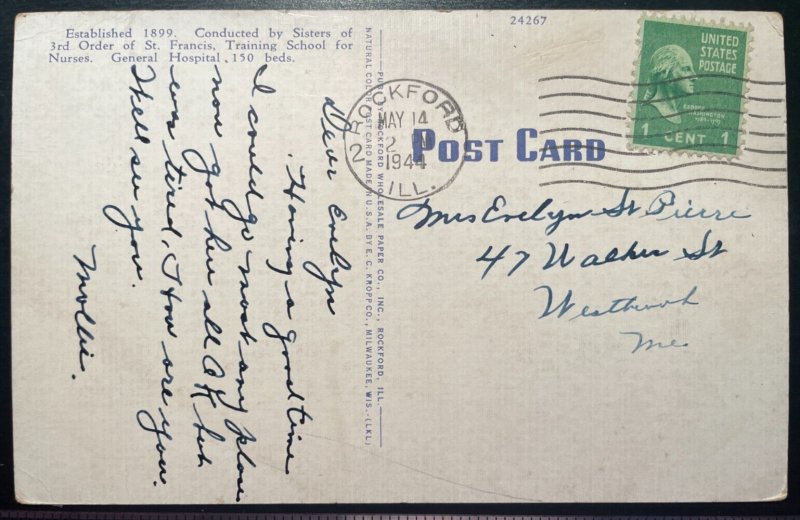 Established 1899. Conducted by Sisters of
3rd Order of St. Francis, Training School for
Nurses. General Hospital 150 beds.
Dear Evelyn
Having a good time
I could go most any place
now got here all OK but
was tired. How are you.
Will see you.
Mollie.
PUB. BY ROCKFORD WHOLESALE PAPER CO., INC., ROCKFORD, ILL.
NATURAL COLOR POST CARD MADE IN U.S.A. BY E. C. KROPP CO., MILWAUKEE, WIS.-(LKL)
24267
ROCKFORD
MAY 14
2
1944
2
ILL.
POST CARD
UNITED
STATES
POSTAGE
GEORGE
WASHINGTON
1789-1797
1 CENT 1
Mrs Evelyn St Pierre
47 Walker St
Westbrook
Me.